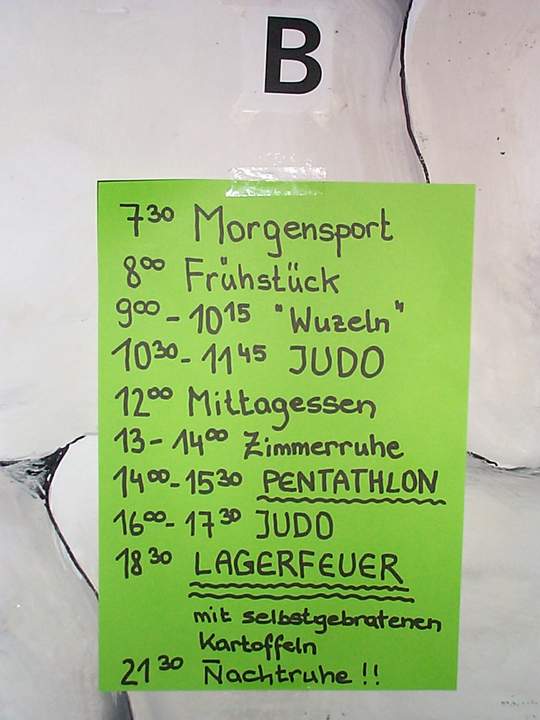 B
7³⁰ Morgensport
8⁰⁰ Frühstück
9⁰⁰ - 10¹⁵ "Wuzeln"
10³⁰ - 11⁴⁵ JUDO
12⁰⁰ Mittagessen
13 - 14⁰⁰ Zimmerruhe
14⁰⁰ - 15³⁰ PENTATHLON
16⁰⁰ - 17³⁰ JUDO
18³⁰ LAGERFEUER
mit selbstgebratenen
Kartoffeln
21³⁰ Nachtruhe !!